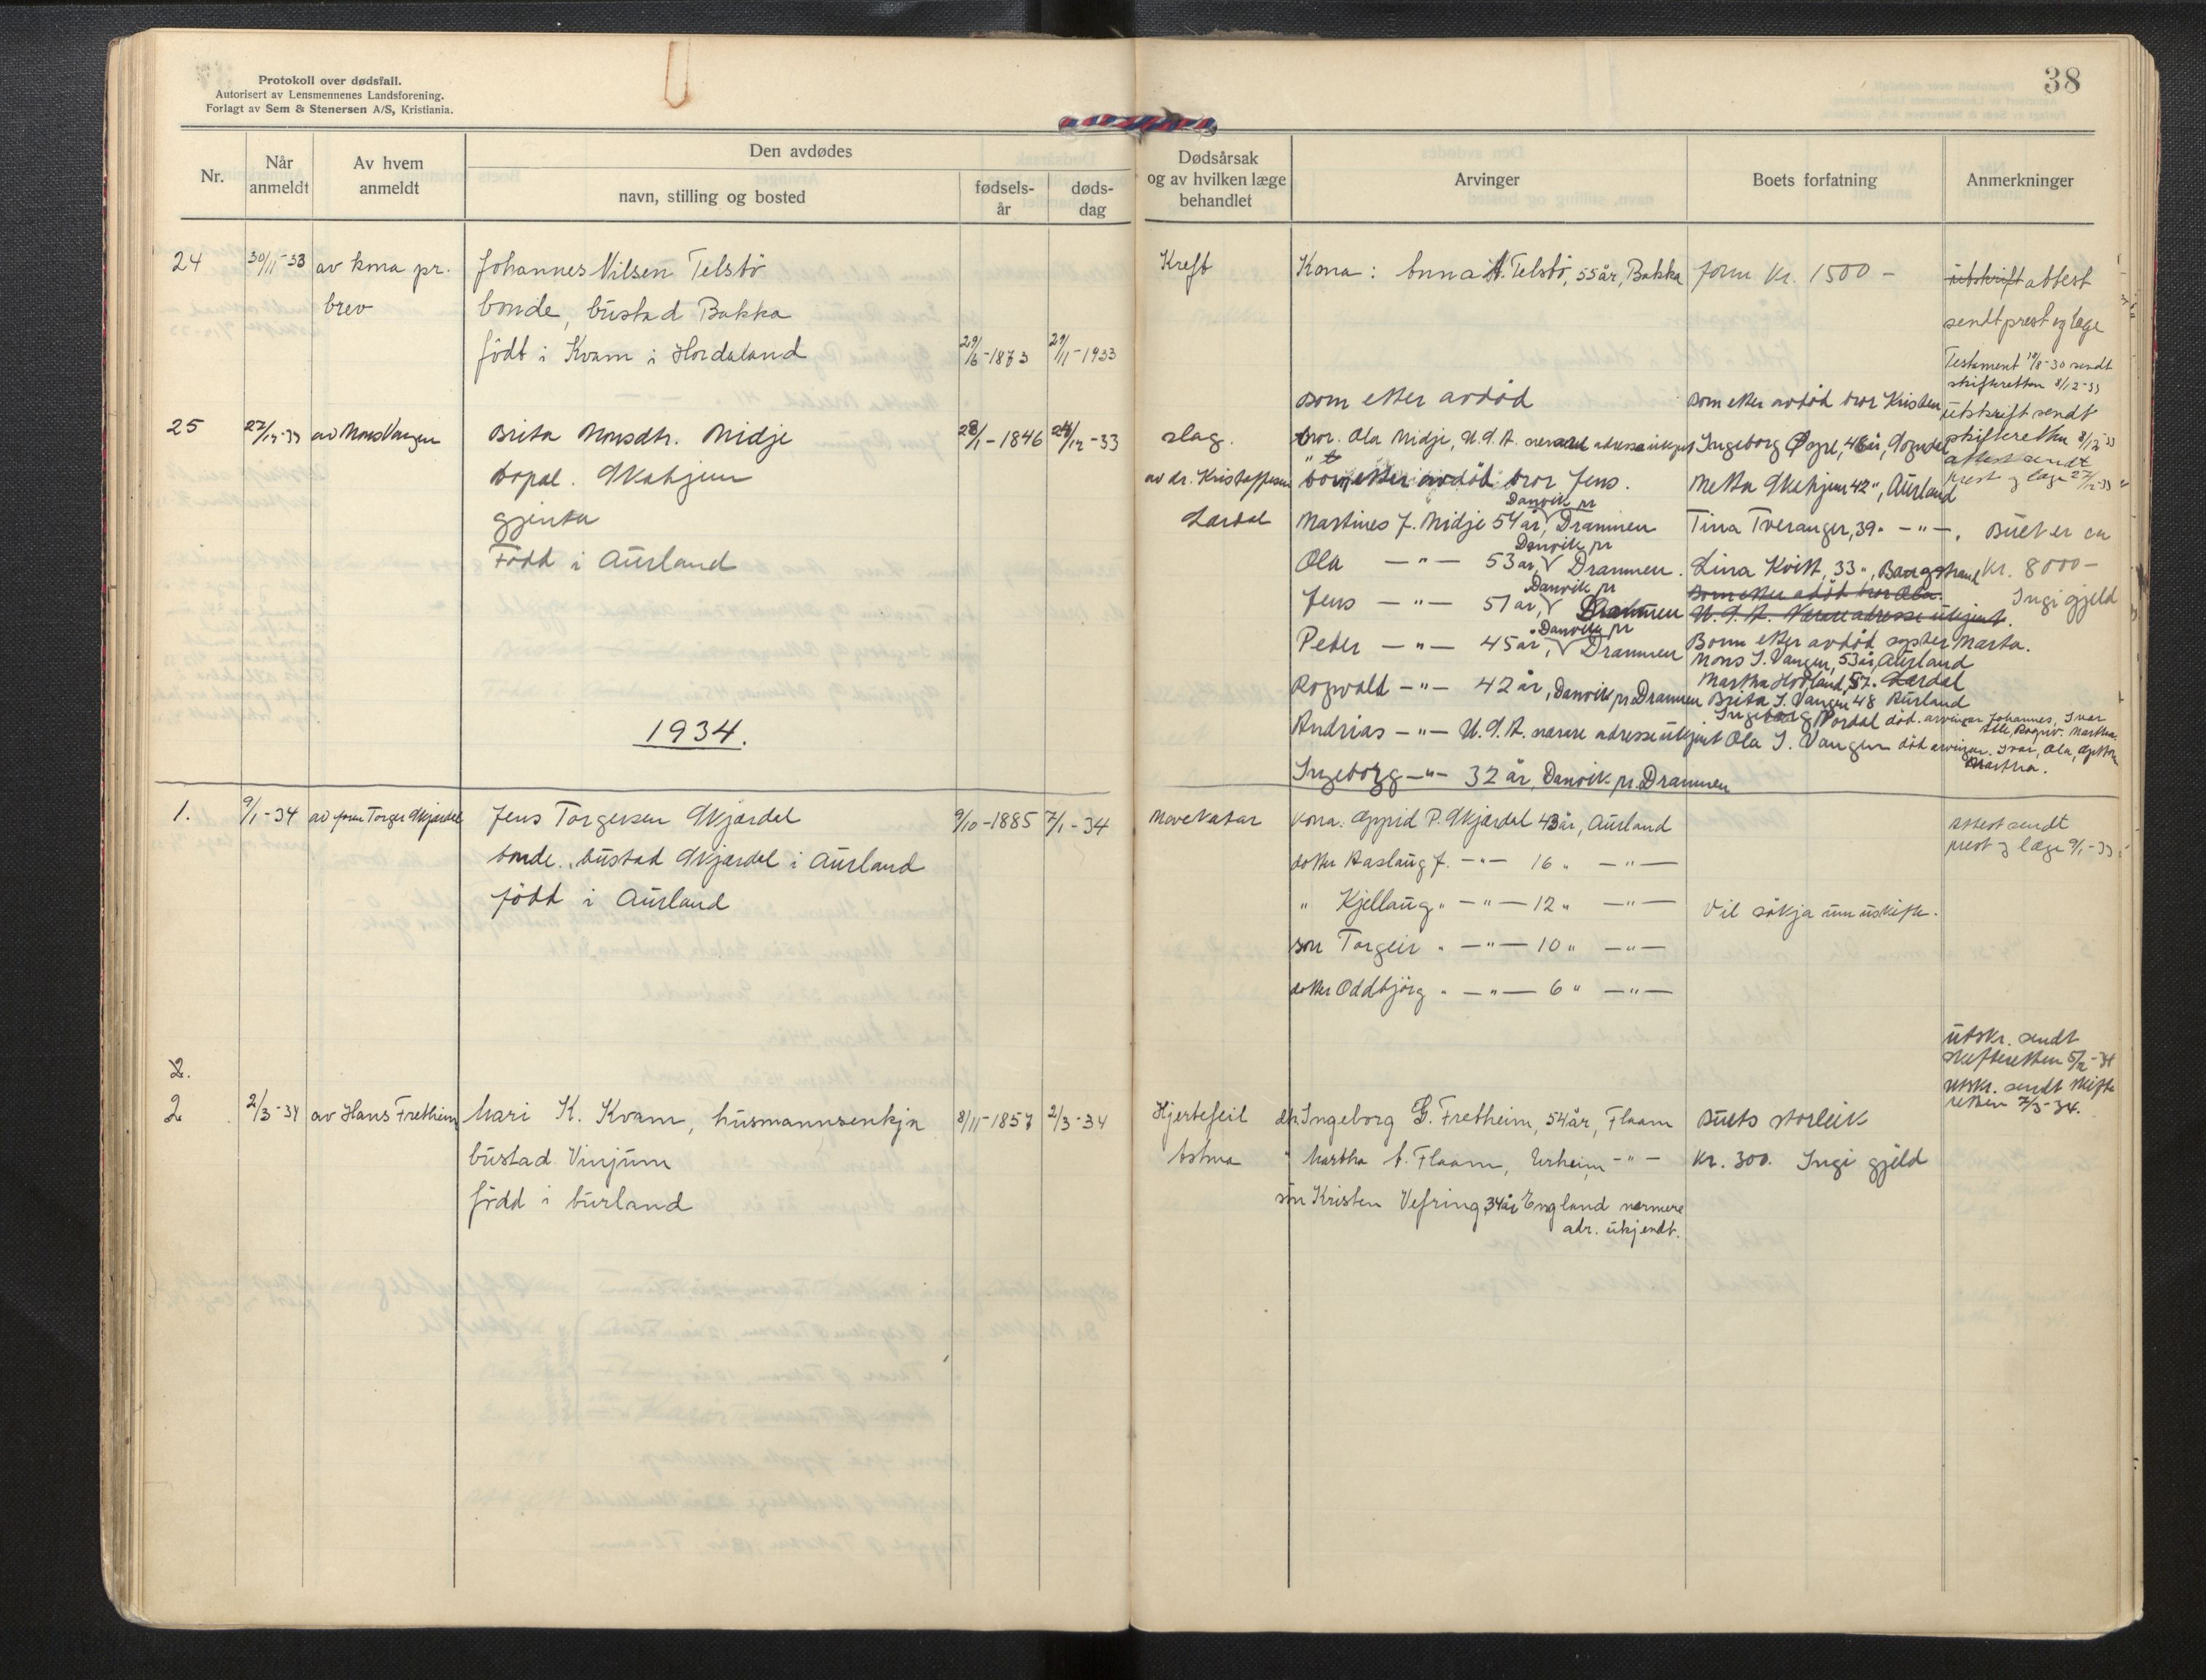 Protokoll over dødsfall.
Autorisert av Lensmennenes Landsforening.
Forlagt av Sem & Stenersen A/S, Kristiania.
38
Nr.
Når anmeldt
Av hvem anmeldt
Den avdødes
navn, stilling og bosted
fødsels-år
døds-dag
Dødsårsak og av hvilken læge behandlet
Arvinger
Boets forfatning
Anmerkninger
24
30/11-33
av kona pr.
brev
Johannes Nilsen Telstö
bonde, bustad Bakka
födt i Kvam i Hordaland
29/6-1873
29/11-1933
Kreft
Kona: Anna A. Telstö, 55 år, Bakka
form Kr. 1500 -
utskrift attest
sendt prest og læge
Testament 19/8-30 sendt
skifteretten 8/12-33
25
27/12-33
av Mons Vangen
Brita Monsdtr. Midje
Skahjem
gjenta
Född i Aurland
28/1-1846
24/12-33
slag.
av dr. Kristoffersen
Lærdal
som etter avdöd
bror. Ola Midje, U.S.A. nærare adresse ukjent
born etter avdöd bror Jens.
Martines J. Midje 54 år, Danvik pr Drammen
Ola —"— 53 år, Danvik pr Drammen.
Jens —"— 51 år, Danvik pr Drammen
Peder —"— 45 år, Danvik pr Drammen
Rognvald —"— 42 år, Danvik pr. Drammen
Andrias —"— U.S.A. nærare adresse ukjent
Ingeborg —"— 32 år, Danvik pr. Drammen
som etter avdöd bror Kristen
Ingeborg 48 år, Sogndal
Metta Skahjem 42 ", Aurland
Tina Tveranger, 39 " —"—.
Lina Kvist, 33 ",
Born etter avdöd bror Ola.
U.S.A. Nærare adresse ukjent.
Born etter avdöd syster Marta.
Mons I. Vangen, 53 år, Aurland
Martha Hovland, 57. Lærdal
Brita I. Vangen 48 Aurland
Ingeborg Vordal död. arvingar Johannes, Ivar
Ola I. Vangen död arvingar. Ivar, Ola,
Martha.
utskrift sendt
skifteretten 8/12-33
attest sendt
prest og læge 27/12-33
Buet er ca
Kr. 8000 -
Ingi gjeld
1934.
1.
9/1-34
Jens Torgersen Skjerdal
bonde. bustad Skjerdal i Aurland
född i Aurland
9/10-1885
7/1-34
Mavekatar
Kona. P. Skjerdal 43 år, Aurland
dotter Aaslaug J. —"— 16 " —"—
" Kjellaug " —"— 12 " —"—
son Torgeir " —"— 10 " —"—
dotter Oddbjörg " —"— 6 " —"—
Vil sökja um uskifte.
Attest sendt
prest og læge 9/1-33
2.
utskr. sendt
skifteretten 5/2-34
2
2/3-34
av Hans Fretheim
Mari K. Kvam, husmannsenkja
bustad Vinjum
född i Aurland
8/11-1857
2/3-34
Hjertefeil
Astma
dtr. Ingeborg G. Fretheim, 54 år, Flaam
" Martha A. Flaam, —"—
sön Kristen Vefring, 34 år England nærmere
adr. ukjendt.
Buets storleik
Kr. 300. Ingi gjeld
Utskr. sendt skifte
retten 7/3-34.